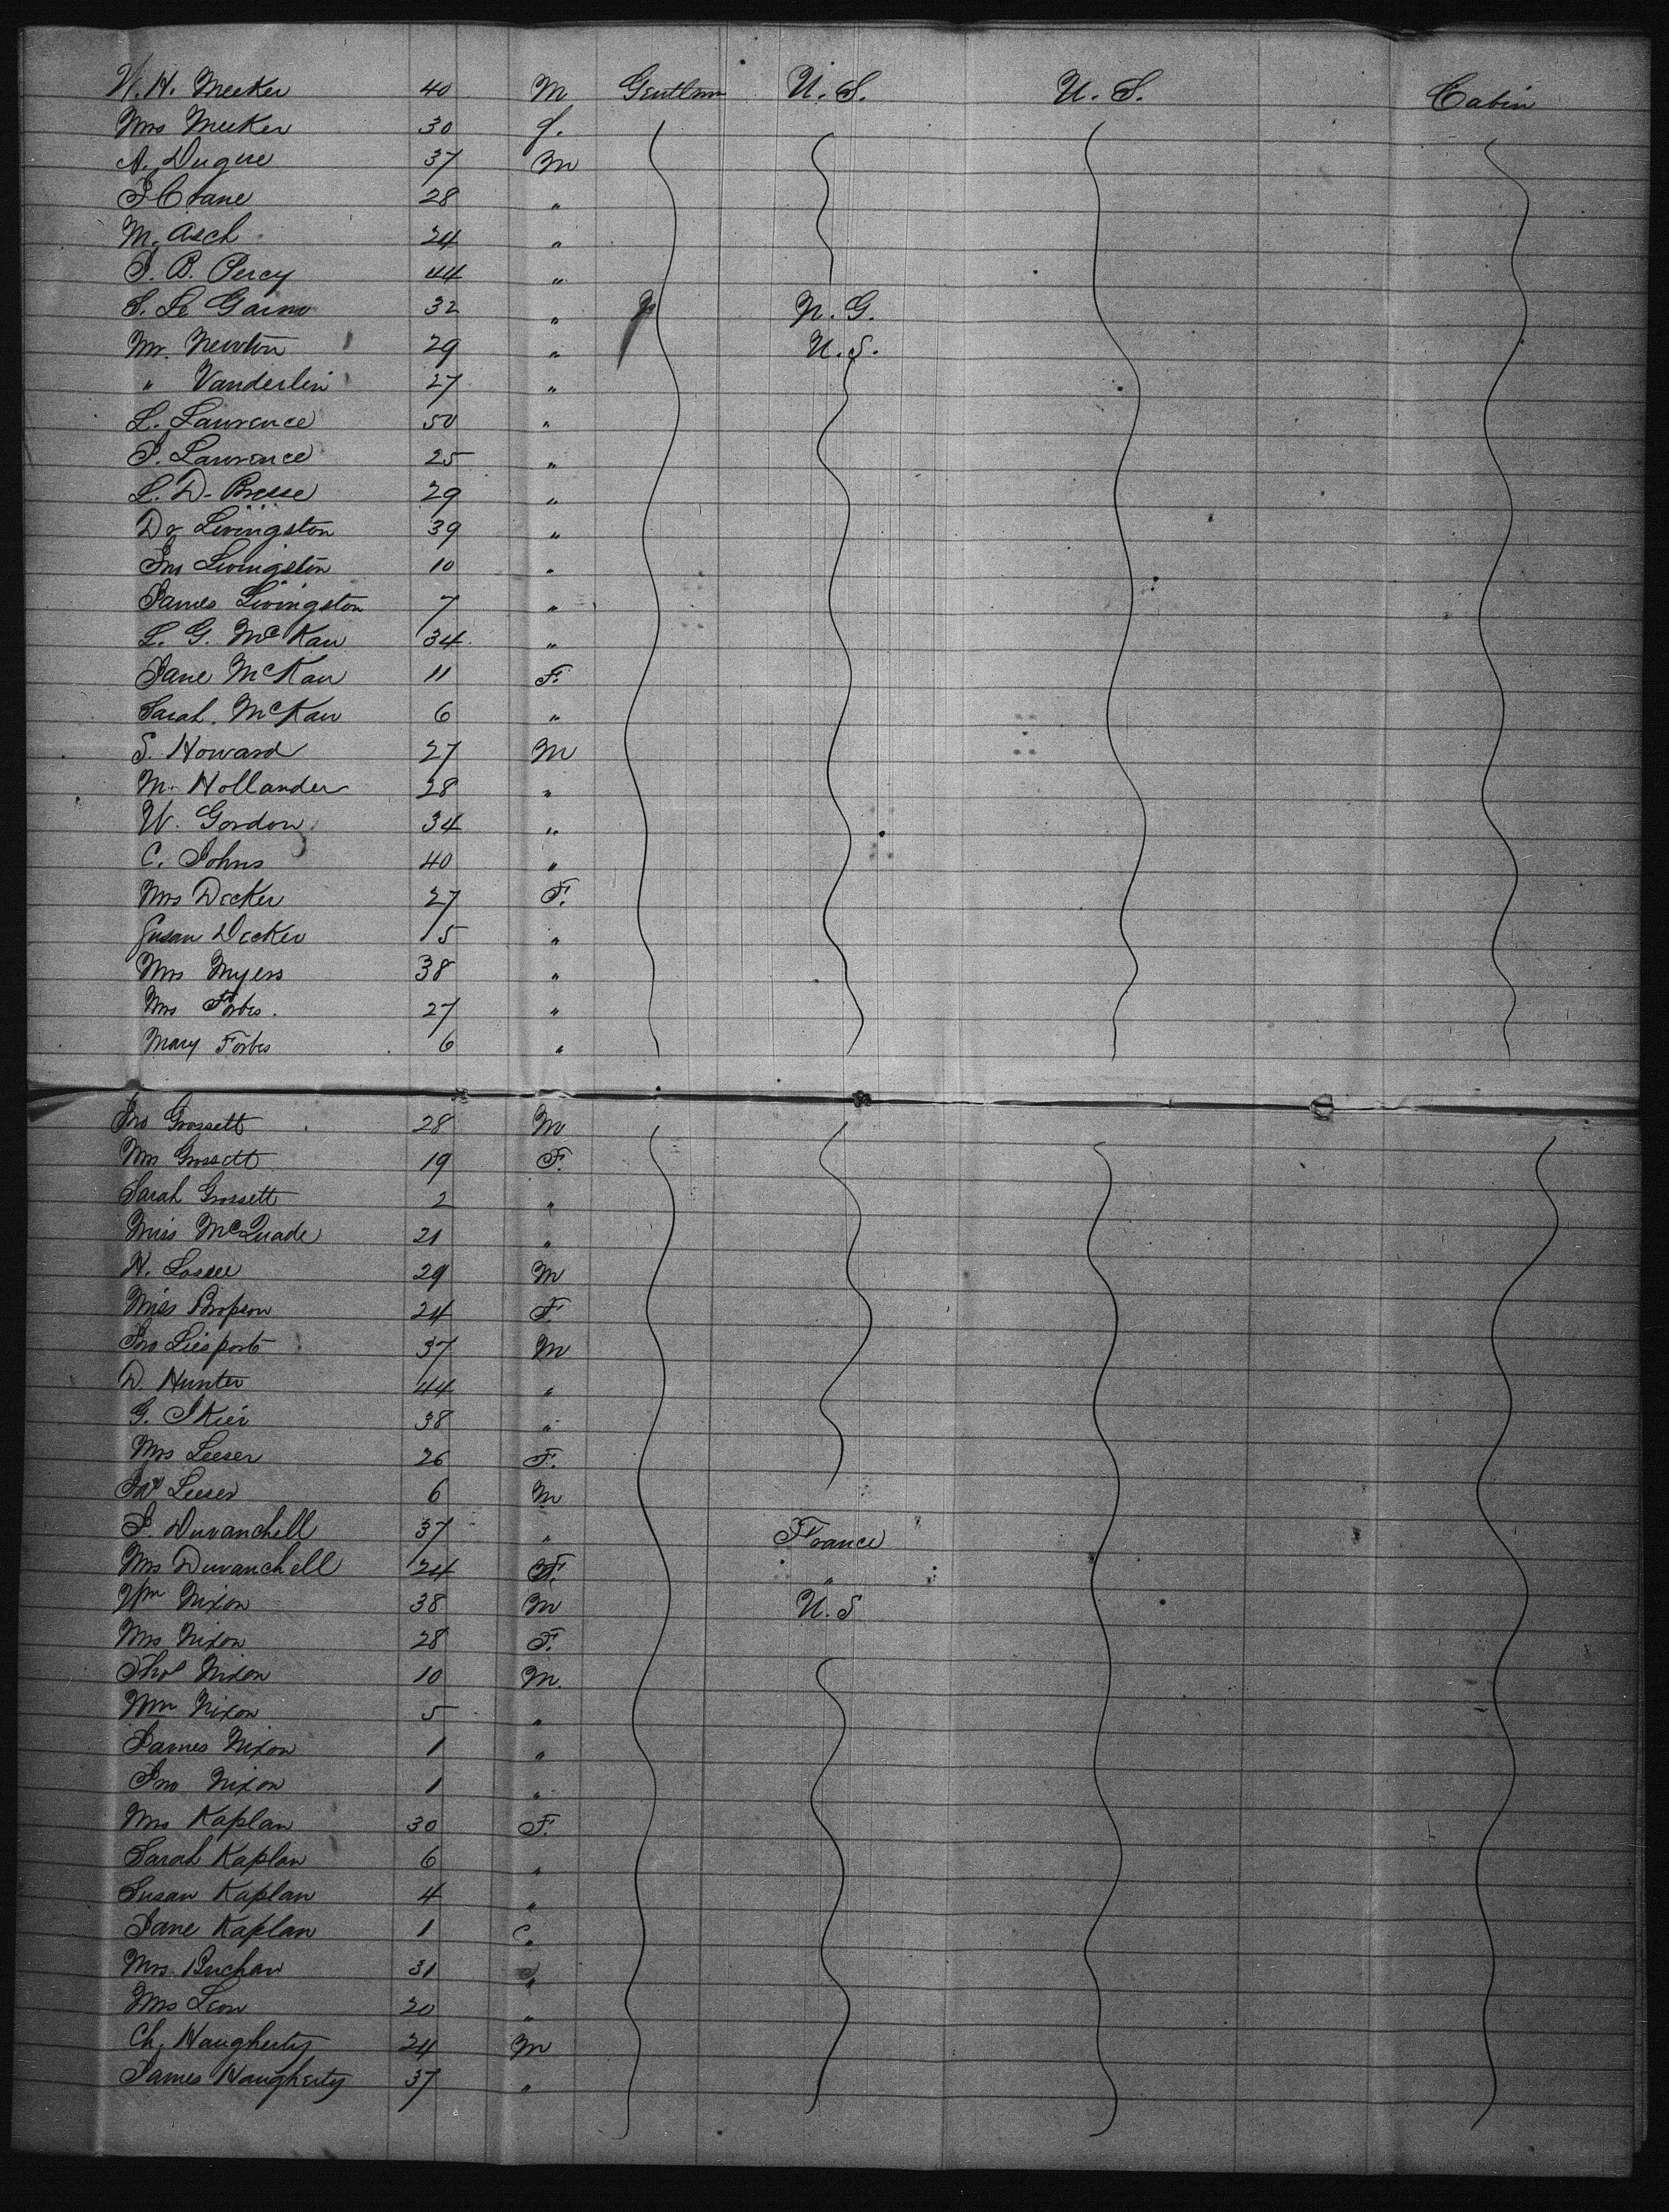 W. H. Meeker 40 M Gentlmn U. S. U. S. Cabin
Mrs Meeker 30 f.
A. Duque 37 M
J Crane 28 "
M. Asch 24 "
J. B. Percy 44 "
S. Le Gaine 32 " N. G.
Mr. Newton 29 " U. S.
" Vanderlin 27 "
L. Lawrence 50 "
J. Lawrence 25 "
L. D. Bresse 29 "
Dr Livingston 39 "
Jno Livingston 10 "
James Livingston 7 "
L. G. McKau 34 "
Jane McKau 11 F.
Sarah McKau 6 "
S. Howard 27 M
M. Hollander 28 "
W. Gordon 34 "
C. Johns 40 "
Mrs Decker 27 F.
Susan Decker 15 "
Mrs Myers 38 "
Mrs Forbes. 27 "
Mary Forbes 6 "
Jno Grossett 28 M
Mrs Grossett 19 F.
Sarah Grossett 2 "
Miss McQuade 21 "
H. Lossee 29 M
Miss Bropson 24 F.
Jno Liesport 37 M
D. Hunter 44 "
G. Skier 38 "
Mrs Leeser 26 F.
Leeser 6 M
J. Duvanchell 37 " France
Mrs Duvanchell 24 F. "
Wm Nixon 38 M U. S
Mrs Nixon 28 F.
Thos Nixon 10 M.
Wm Nixon 5 "
James Nixon 1 "
Jno Nixon 1 "
Mrs Kaplan 30 F.
Sarah Kaplan 6 "
Susan Kaplan 4 "
Jane Kaplan 1 "
Mrs. Buchan 31 "
Mrs Leon 20 "
Ch. Haugherty 24 M
James Haugherty 37 "